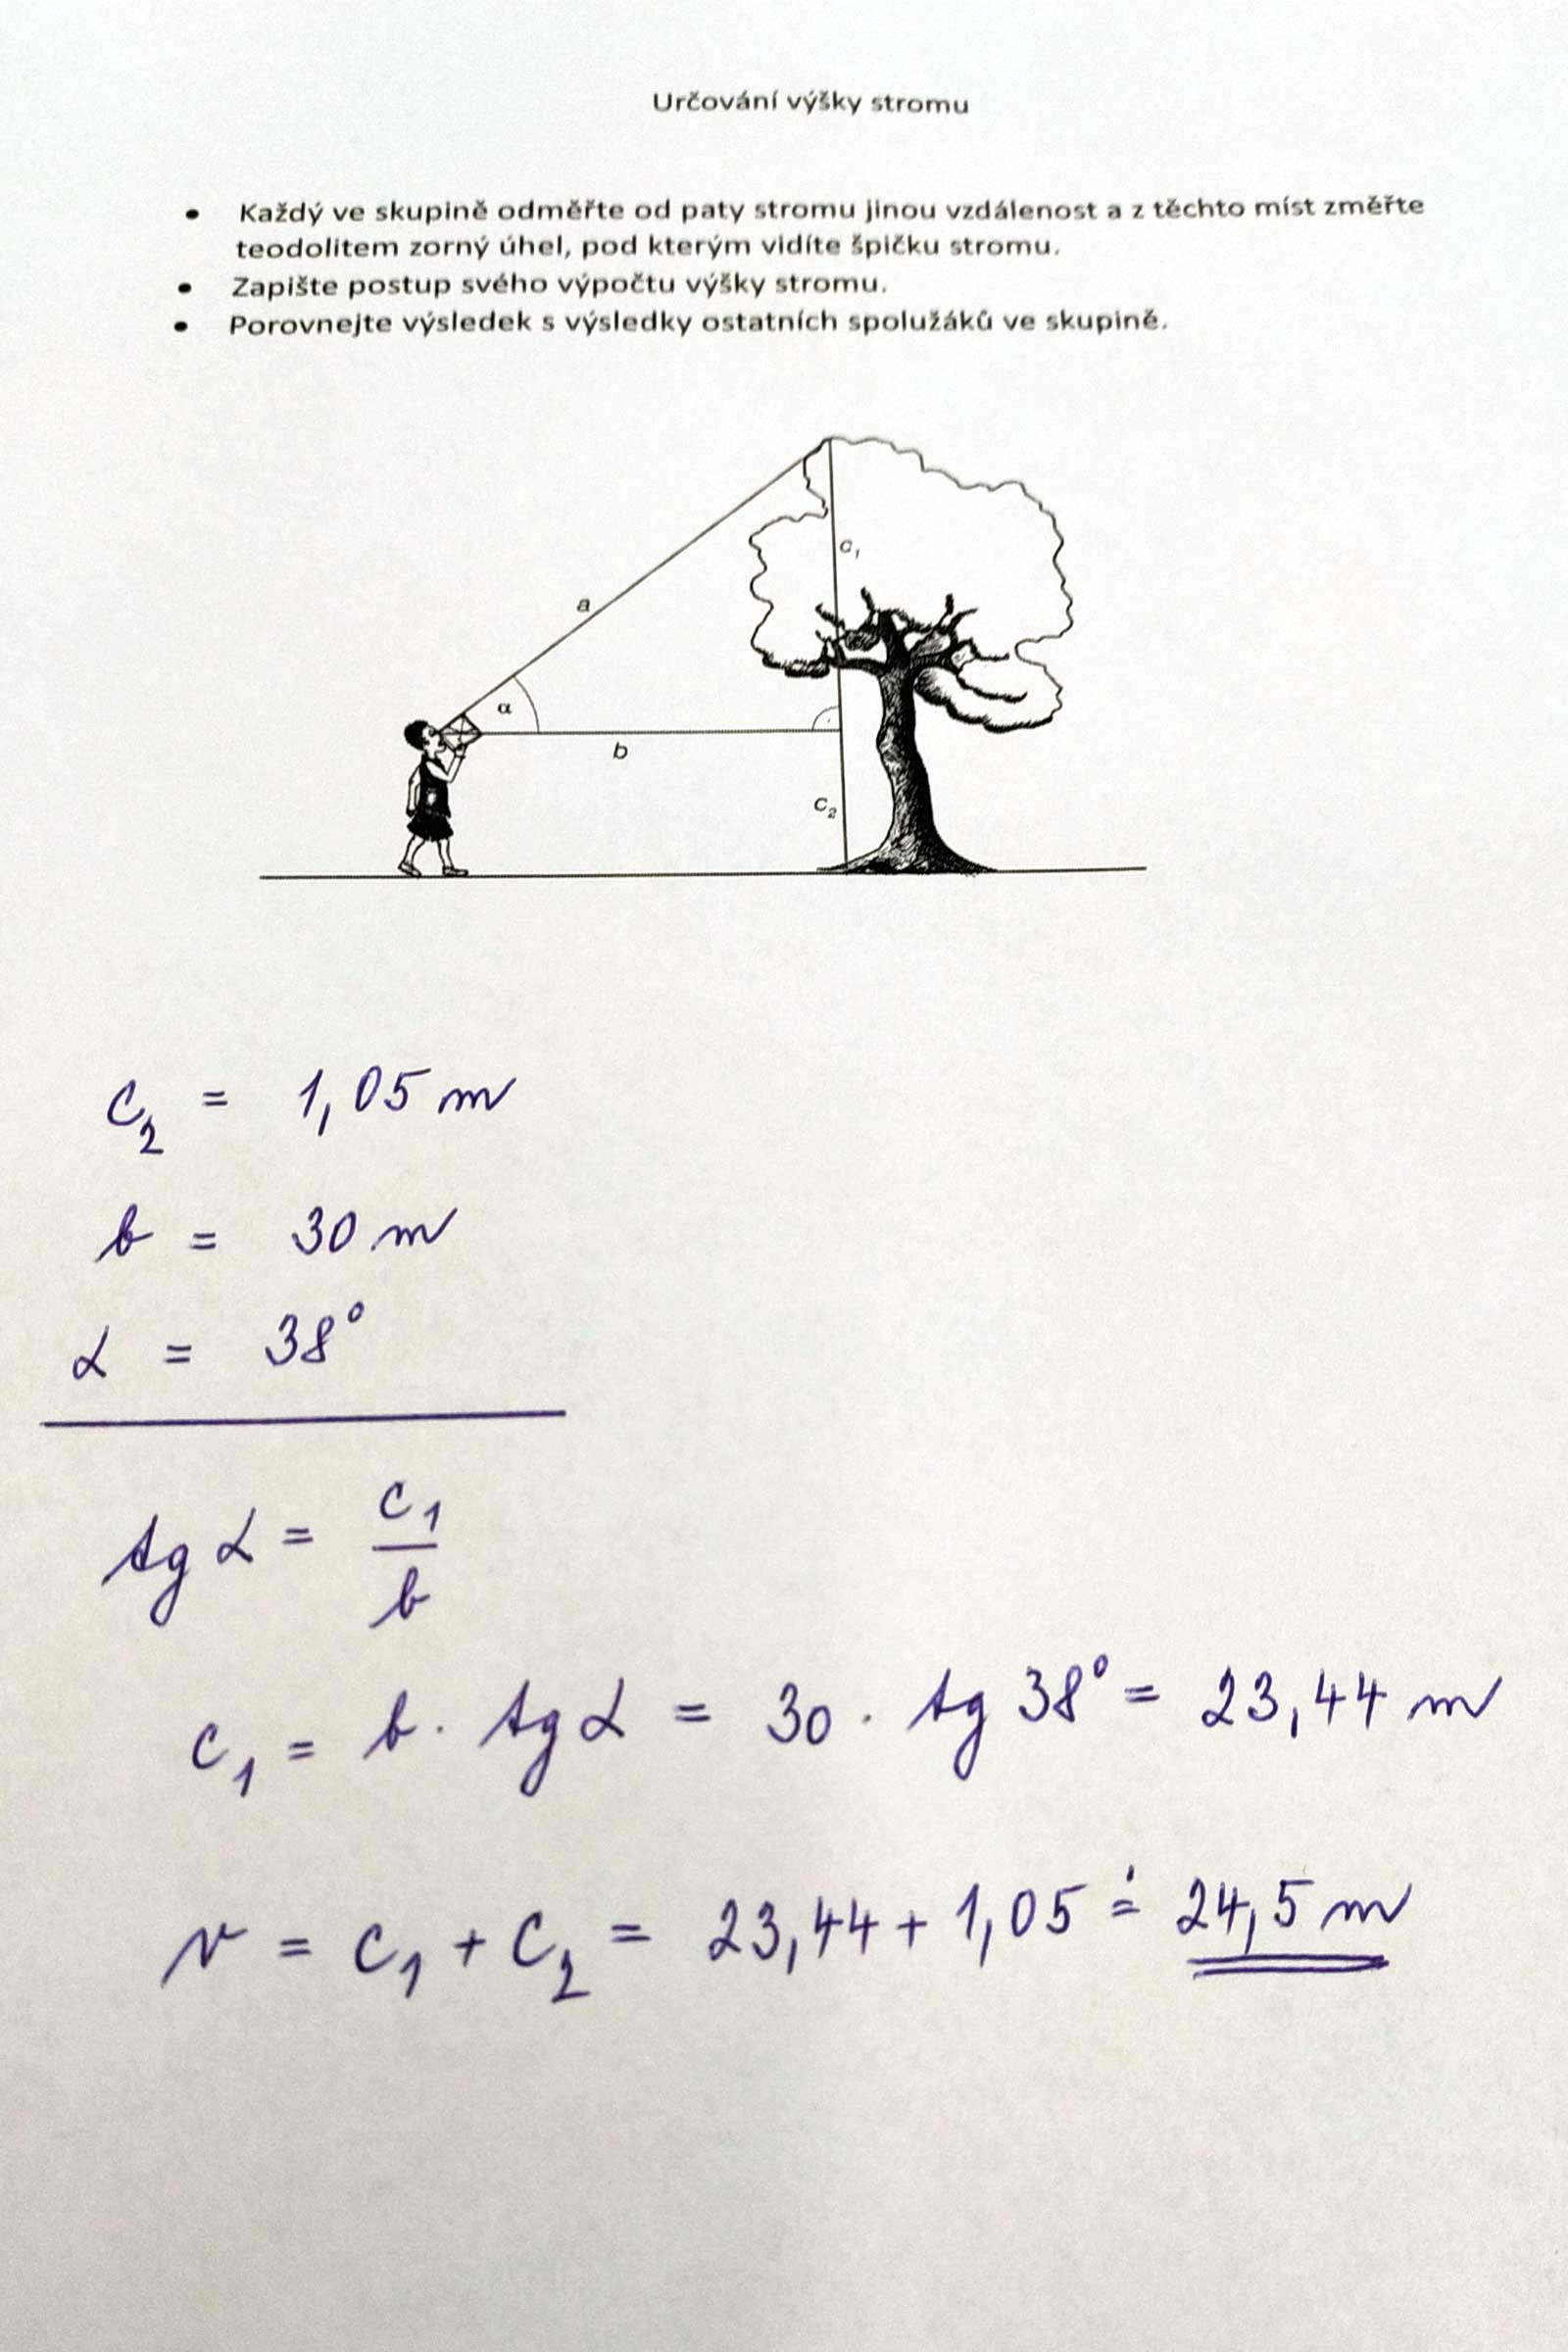 Určování výšky stromu
• Každý ve skupině odměřte od paty stromu jinou vzdálenost a z těchto míst změřte
teodolitem zorný úhel, pod kterým vidíte špičku stromu.
• Zapište postup svého výpočtu výšky stromu.
• Porovnejte výsledek s výsledky ostatních spolužáků ve skupině.
c₁
a
α
b
c₂
c₂ = 1,05 m
b = 30 m
α = 38°
tg α = c₁/b
c₁ = b · tg α = 30 · tg 38° = 23,44 m
v = c₁ + c₂ = 23,44 + 1,05 ≐ 24,5 m